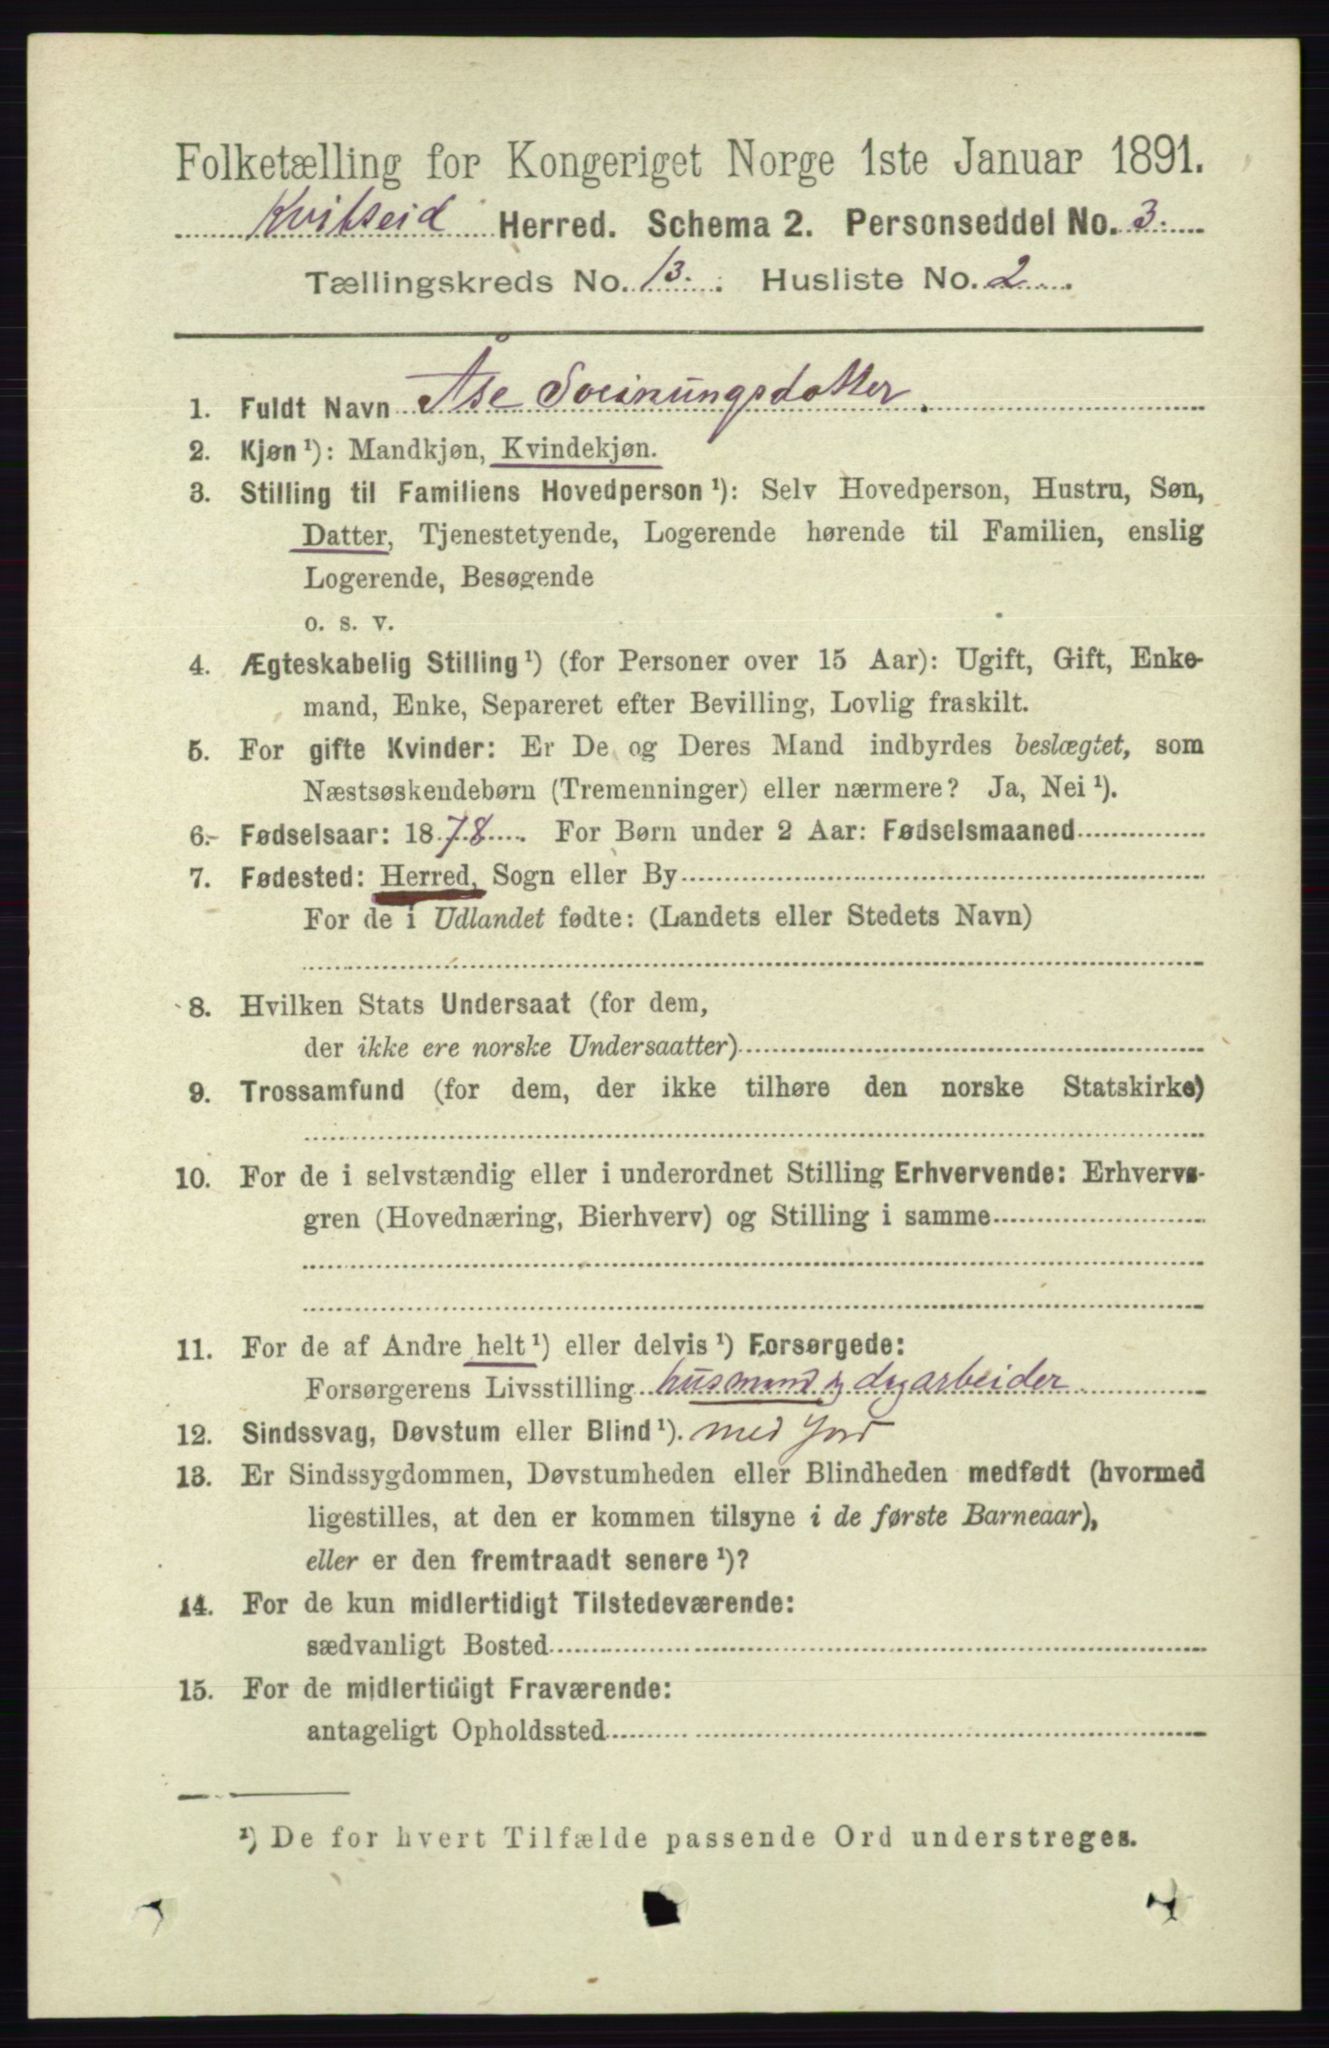 Folketælling for Kongeriget Norge 1ste Januar 1891.
Kvitseid Herred. Schema 2. Personseddel No. 3.
Tællingskreds No. 13. Husliste No. 2.
1. Fuldt Navn Åse Sveinungsdatter.
2. Kjøn ¹): Mandkjøn, Kvindekjøn.
3. Stilling til Familiens Hovedperson ¹): Selv Hovedperson, Hustru, Søn,
Datter, Tjenestetyende, Logerende hørende til Familien, enslig
Logerende, Besøgende
o. s. v.
4. Ægteskabelig Stilling ¹) (for Personer over 15 Aar): Ugift, Gift, Enke-
mand, Enke, Separeret efter Bevilling, Lovlig fraskilt.
5. For gifte Kvinder: Er De og Deres Mand indbyrdes beslægtet, som
Næstsøskendebørn (Tremenninger) eller nærmere? Ja, Nei ¹).
6. Fødselsaar: 1878. For Børn under 2 Aar: Fødselsmaaned
7. Fødested: Herred, Sogn eller By
For de i Udlandet fødte: (Landets eller Stedets Navn)
8. Hvilken Stats Undersaat (for dem,
der ikke ere norske Undersaatter)
9. Trossamfund (for dem, der ikke tilhøre den norske Statskirke)
10. For de i selvstændig eller i underordnet Stilling Erhvervende: Erhvervs-
gren (Hovednæring, Bierhverv) og Stilling i samme
11. For de af Andre helt ¹) eller delvis ¹) Forsørgede:
Forsørgerens Livsstilling husmand og dagarbeider
12. Sindssvag, Døvstum eller Blind ¹). med Jord
13. Er Sindssygdommen, Døvstumheden eller Blindheden medfødt (hvormed
ligestilles, at den er kommen tilsyne i de første Barneaar),
eller er den fremtraadt senere ¹)?
14. For de kun midlertidigt Tilstedeværende:
sædvanligt Bosted
15. For de midlertidigt Fraværende:
antageligt Opholdssted
¹) De for hvert Tilfælde passende Ord understreges.